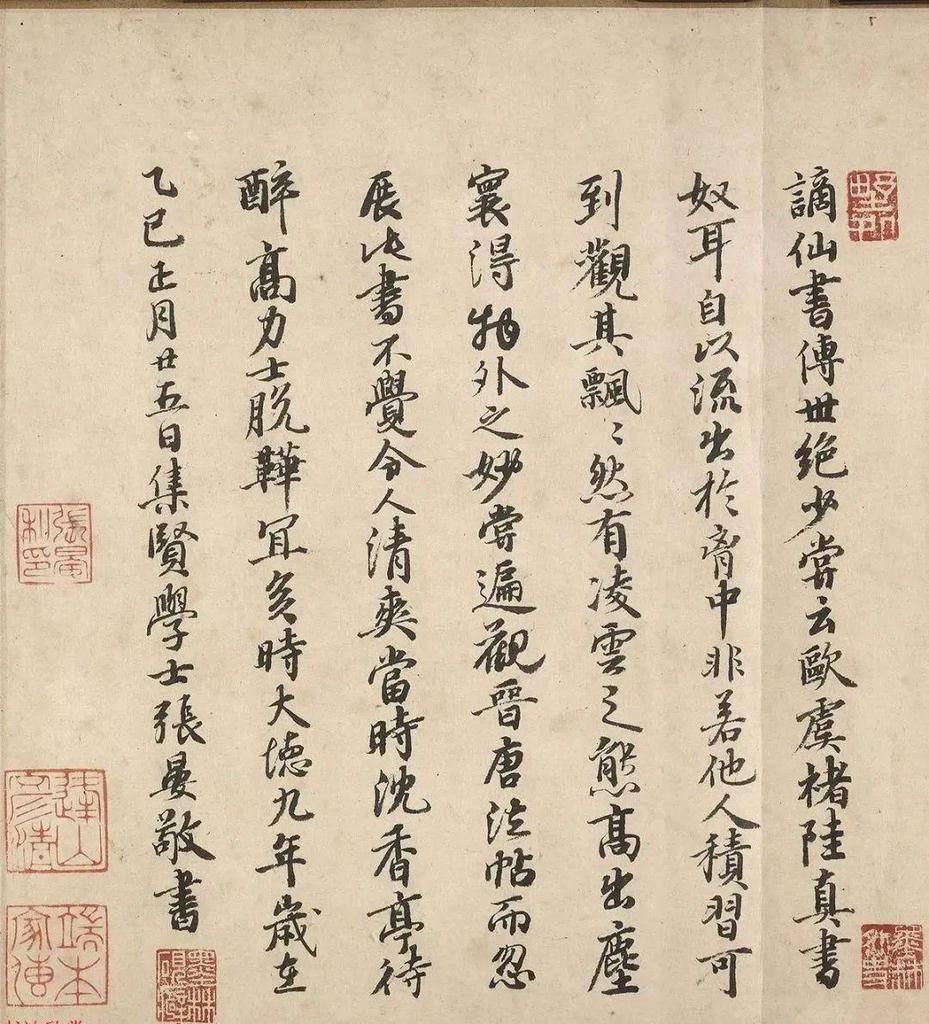 謫仙書傳世絶少嘗云歐虞褚陸真書
奴耳自以流出於胷中非若他人積習可
到觀其飄〻然有凌雲之態高出塵
寰得物外之妙嘗遍觀晉唐法帖而忽
展此書不覺令人清爽當時沈香亭待
醉高力士脱鞾冝矣時大徳九年歳在
乙巳正月廿五日集賢學士張晏敬書
張晏私印